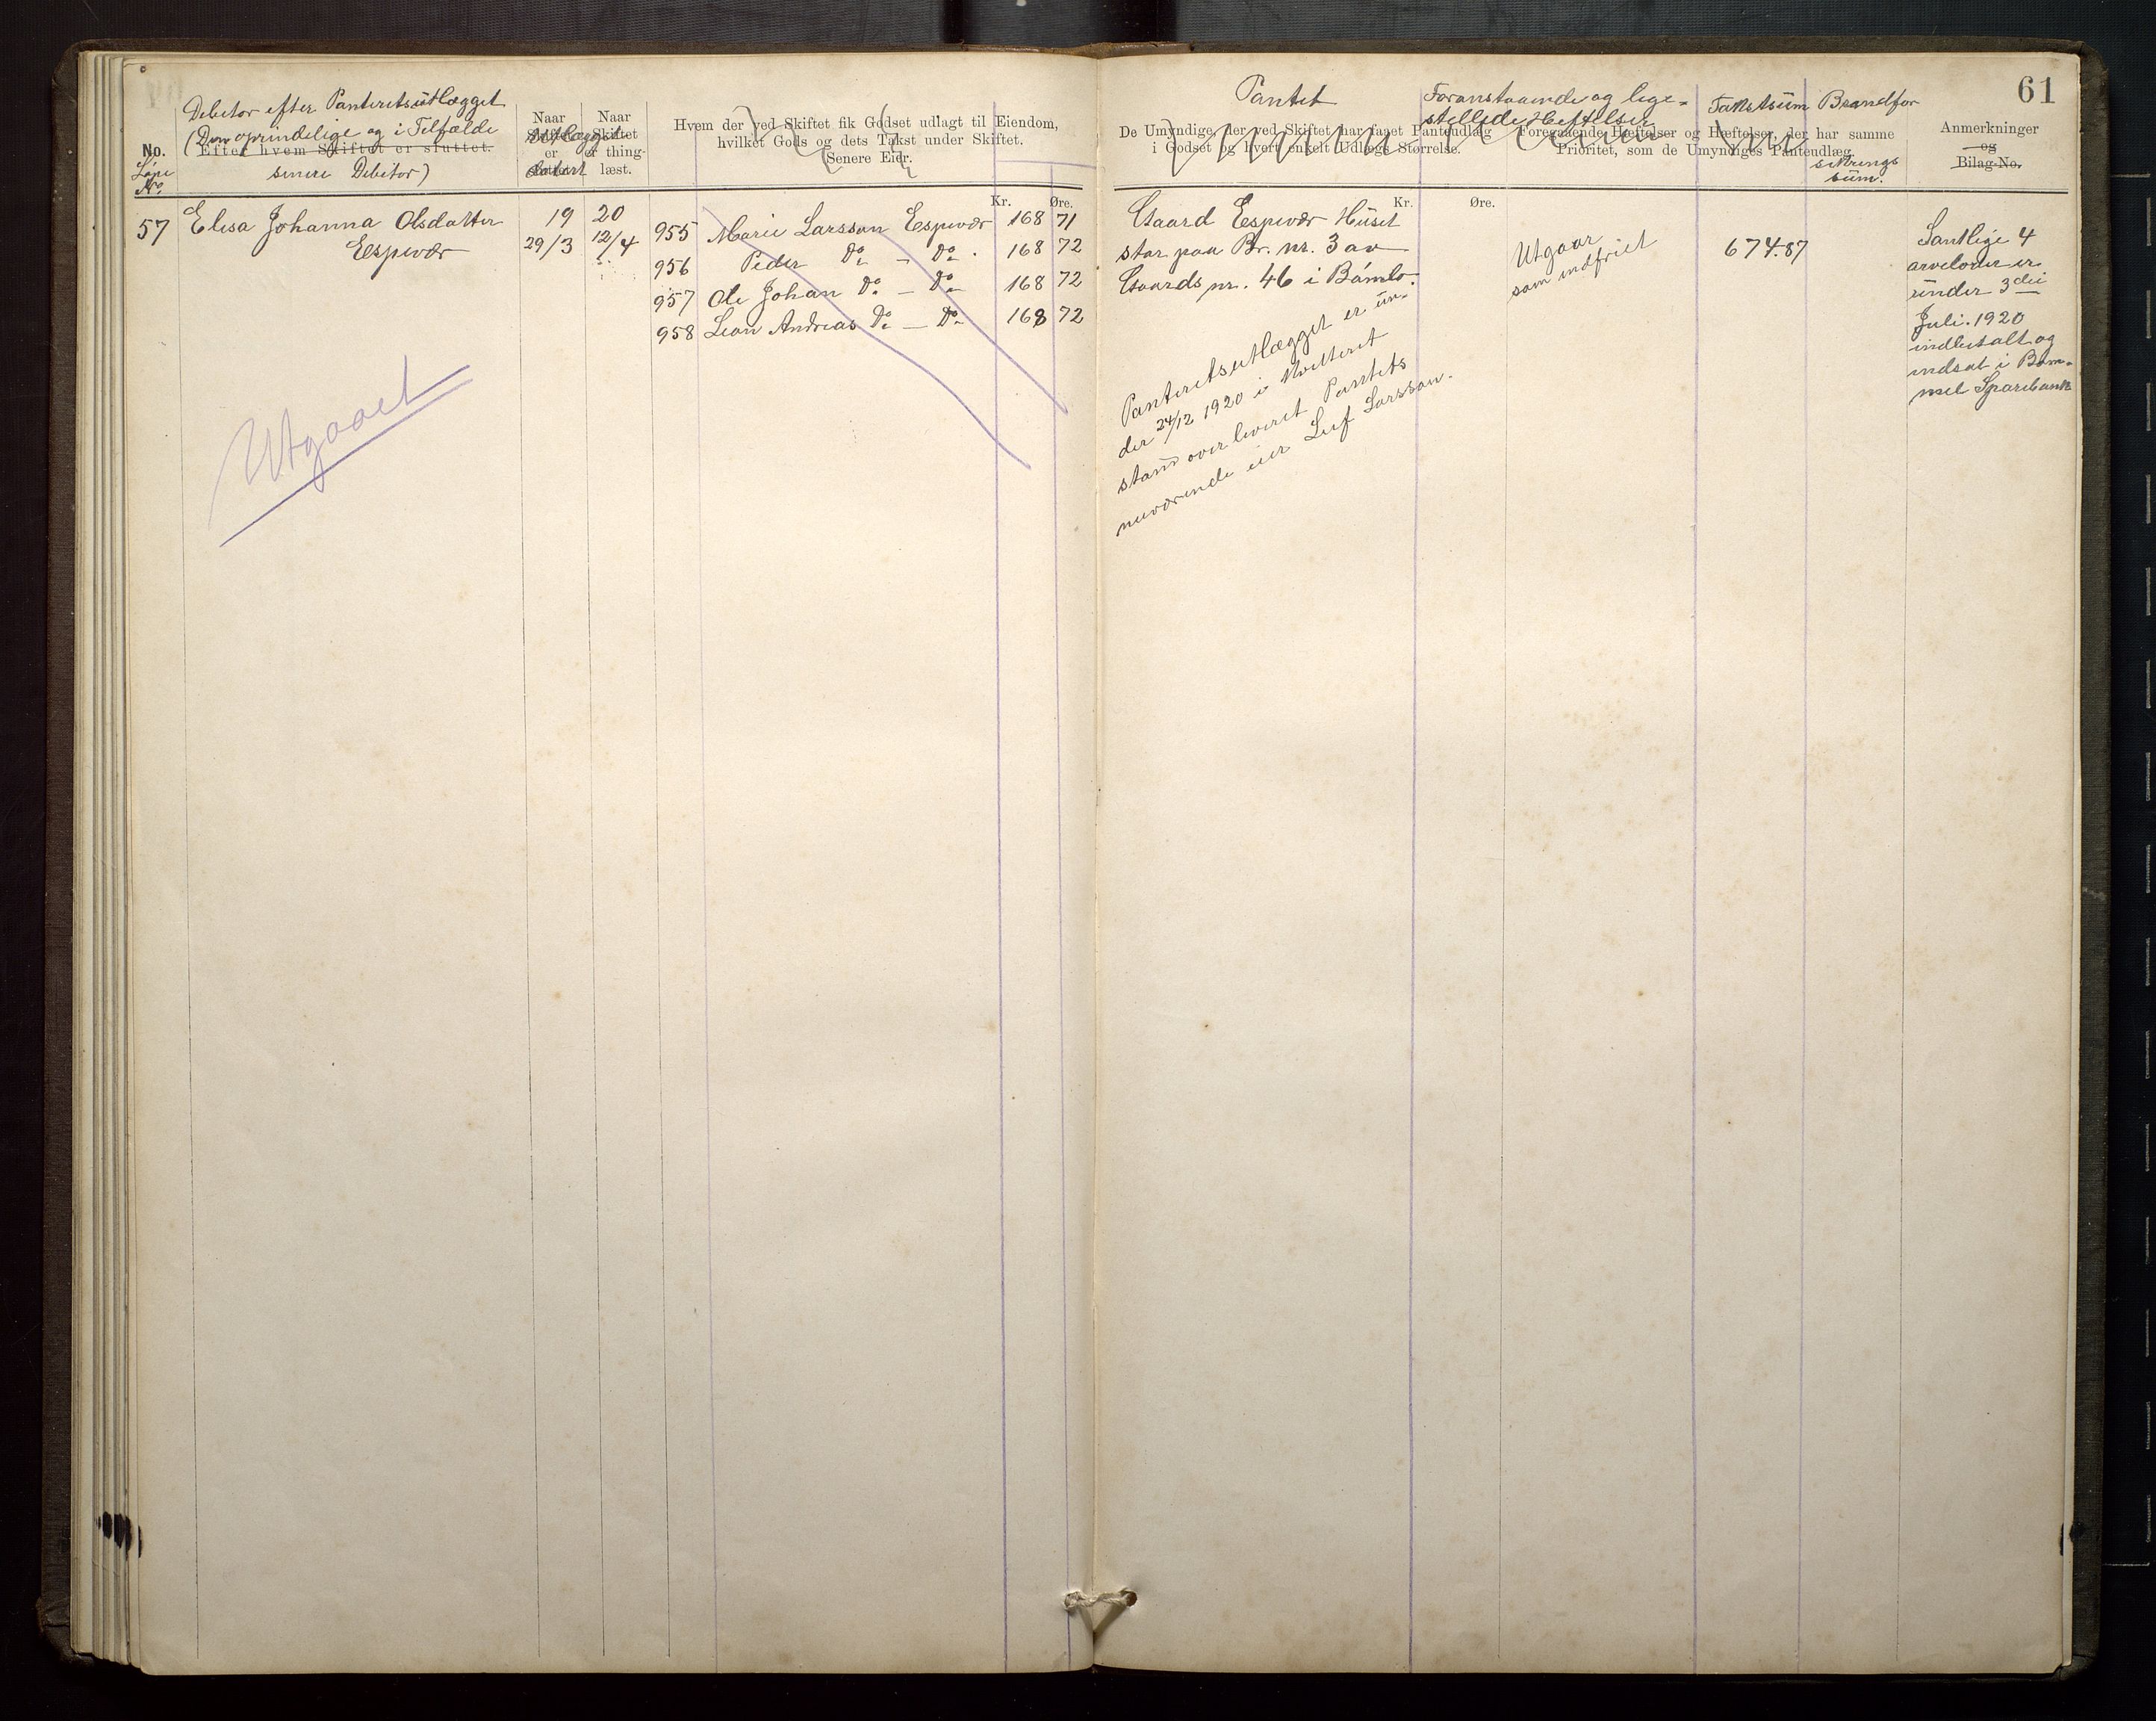 61
Debitor efter Panteretsutlægget
(Den oprindelige og i Tilfælde
Efter hvem Skiftet er sluttet.
senere Debitor)
No.
Løpe
No.
Naar
Skiftet
Utlægget
er
sluttet
datert
Naar
Skiftet
er thing-
læst.
Hvem der ved Skiftet fik Godset udlagt til Eiendom,
hvilket Gods og dets Takst under Skiftet.
Senere Eier.
Kr. Øre.
57 Elisa Johanna Olsdatter 19 20
Espevær 29/3 12/4
955 Marie Larsson Espevær 168 71
956 Peder Do – Do 168 72
957 Ole Johan Do – Do 168 72
958 Leon Andreas Do – Do 168 72
Utgaaet
Pantet
De Umyndige, der ved Skiftet har faaet Panteudlæg
i Godset og hvert enkelt Udlægs Størrelse.
Kr. Øre.
Foranstaaende og lige-
stillede Heftelser
Foregaaende Hæftelser og Hæftelser, der har samme
Prioritet, som de Umyndiges Panteudlæg.
Takstsum
Brandfor
sikrings
sum.
Anmerkninger
og
Bilag-No.
Gaard Espevær Huset
star paa Br. nr. 3 av
Gaards nr. 46 i Bømlo.
Panteretsutlægget er un-
der 24/12 1920 i kvitteret
stand overleveret Pantets
nuværende eier Leif Larsson.
Utgaar
som indfriet
674.87
Samtlige 4
arvelodder er
under 3die
Juli. 1920
indbetalt og
indsat i Bøm-
mel Sparebank